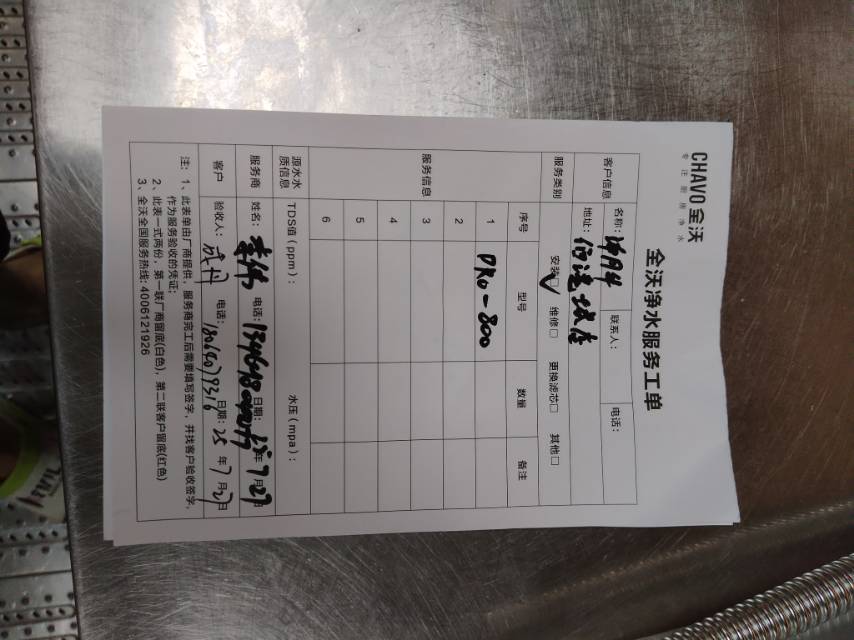 CHAVO 全沃
专注厨房净水
全沃净水服务工单
客户信息 名称： 联系人： 电话：
地址：
服务类别 安装☑ 维修□ 更换滤芯□ 其他□
服务信息 序号 型号 数量 备注
1 PRO-800
2
3
4
5
6
源水水质信息 TDS值（ppm）： 水压（mpa）：
服务商 姓名：李伟 电话： 日期：25年7月27日
客户 验收人： 电话：18064079316 日期：25年7月27日
注：1、此表单由厂商提供，服务商完工后需要填写签字，并找客户验收签字，
作为服务验收的凭证；
2、此表一式两份，第一联厂商留底(白色)，第二联客户留底(红色)
3、全沃全国服务热线：4006121926